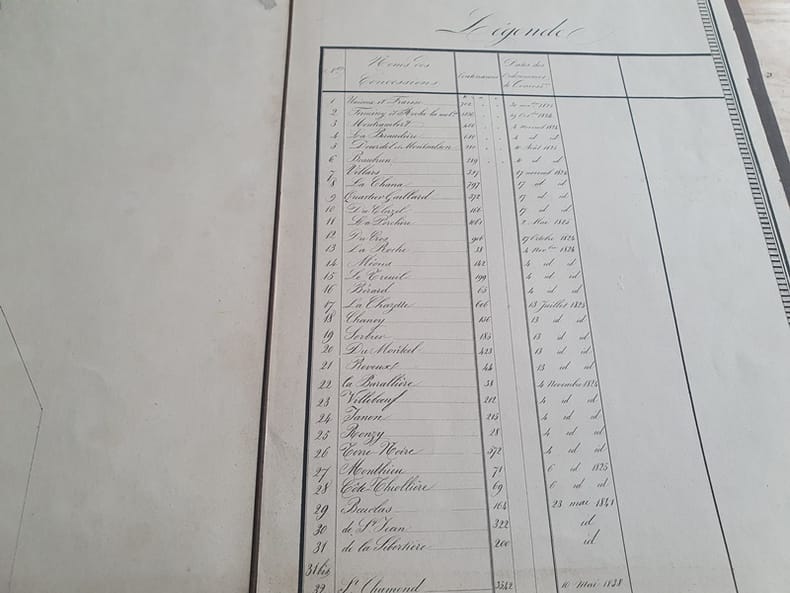 Légende
Nos Noms des Concessions Contenances Dates des Ordonnances de Concess.
1 Unieux et Fraisse 702
2 Firminy et Roche la 1824
3 Montrambert 4 1824
4 La Béraudière 4 id id
5 Dourdel et Montsalson Août 1825
6 Beaubrun id id
7 Villars 1824
8 La Chana 797 17 id id
9 Quartier Gaillard 372 17 id id
10 Du Cluzel 17 id id
11 La Porchère 2 Mai 1825
12 Du Cros 906 17 Octobre 1824
13 La Roche 38 4 Novbre 1824
14 Méons 142 4 id id
15 Le Treuil 199 4 id id
16 Bérard 65 4 id id
17 La Chazotte 606 13 Juillet 1825
18 Chaney 13 id id
19 Sorbier 185 13 id id
20 Du Monteel 423 13 id id
21 Reveux 44 13 id id
22 la Barallière 58 4 Novembre 1824
23 Villebœuf 212 4 id id
24 Janon 215 4 id id
25 Ronzy 28 4 id id
26 Terre-Noire 572 4 id id
27 Monthieu 71 6 id 1825
28 Côte-Thiollière 69 6 id id
29 164 23 mai 1841
30 de St. Jean 322 id
31 de la Sibertière 200 id
31 bis
32 St. Chamond 3542 10 Mai 1838